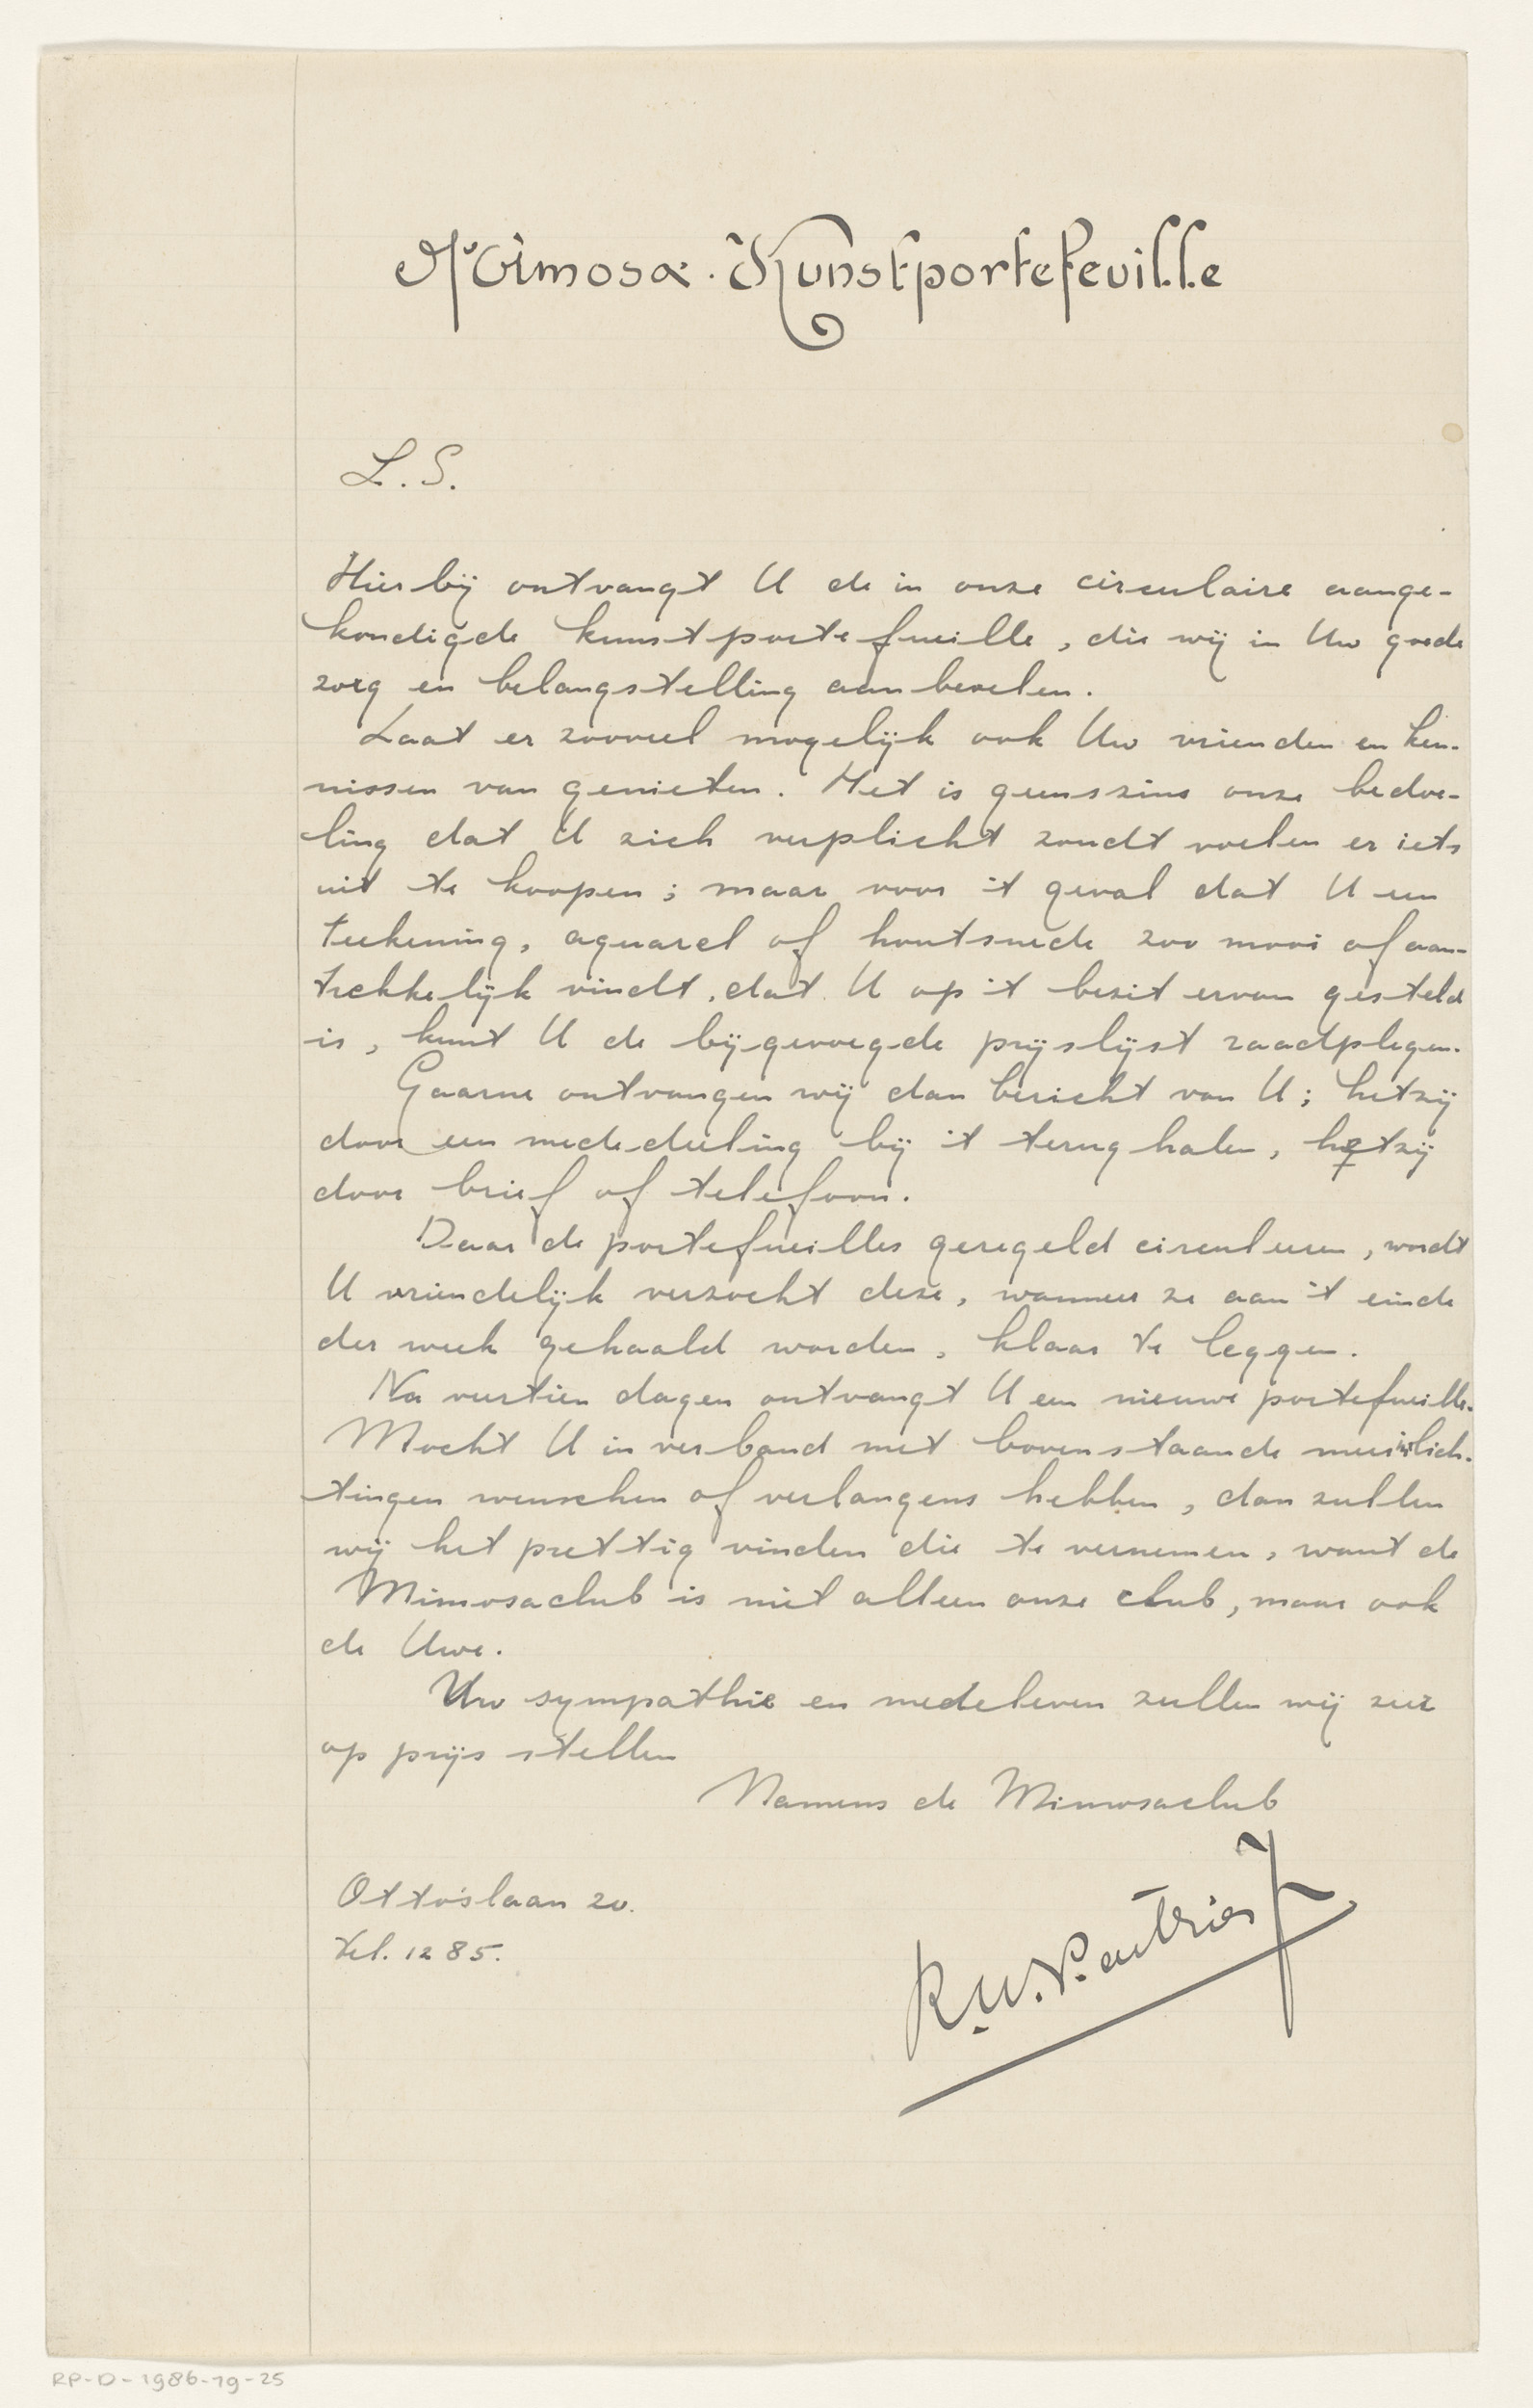 Mimosa · Kunstportefeuille
L. S.
Hierbij ontvangt U de in onze circulaire aange-
kondigde kunstportefeuille, die wij in Uw goede
zorg en belangstelling aanbevelen.
Laat er zooveel mogelijk ook Uw vrienden en ken-
nissen van genieten. Het is geenszins onze bedoe-
ling dat U zich verplicht zoudt voelen er iets
uit te koopen; maar voor 't geval dat U een
teekening, aquarel of houtsnede zoo mooi of aan-
trekkelijk vindt, dat U op 't bezit ervan gesteld
is, kunt U de bijgevoegde prijslijst raadplegen.
Gaarne ontvangen wij dan bericht van U; hetzij
door een mededeeling bij 't terug halen, hetzij
door brief of telefoon.
Daar de portefeuilles geregeld circuleeren, wordt
U vriendelijk verzocht deze, wanneer ze aan 't einde
der week gehaald worden, klaar te leggen.
Na veertien dagen ontvangt U een nieuwe portefeuille.
Mocht U in verband met bovenstaande
tingen wenschen of verlangens hebben, dan zullen
wij het prettig vinden die te vernemen, want de
Mimosaclub is niet alleen onze club, maar ook
de Uwe.
Uw sympathie en medeleven zullen wij zeer
op prijs stellen
Namens de Mimosaclub
Otto'slaan 20.
tel. 1285.
R. W. P. de Vries Jr
RP-D-1986-19-25